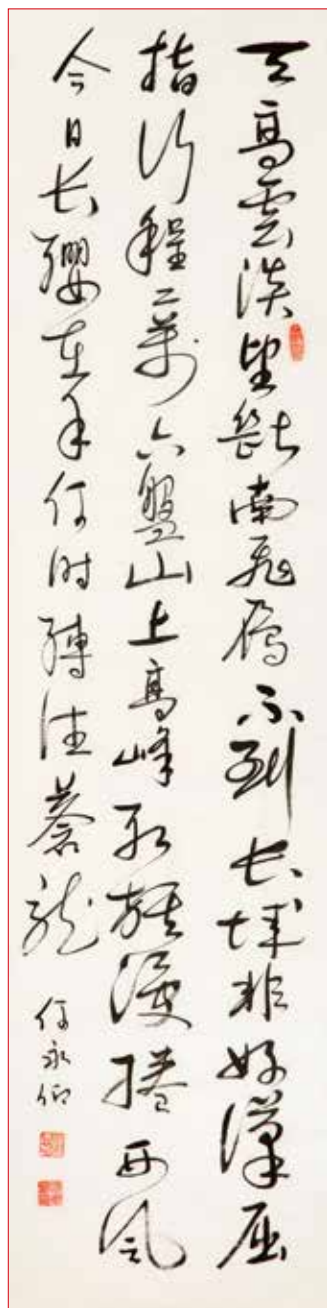 天高雲淡望斷南飛雁不到長城非好漢屈
指行程二萬六盤山上高峰紅旗漫捲西風
今日長纓在手何時縛住蒼龍
何永仰